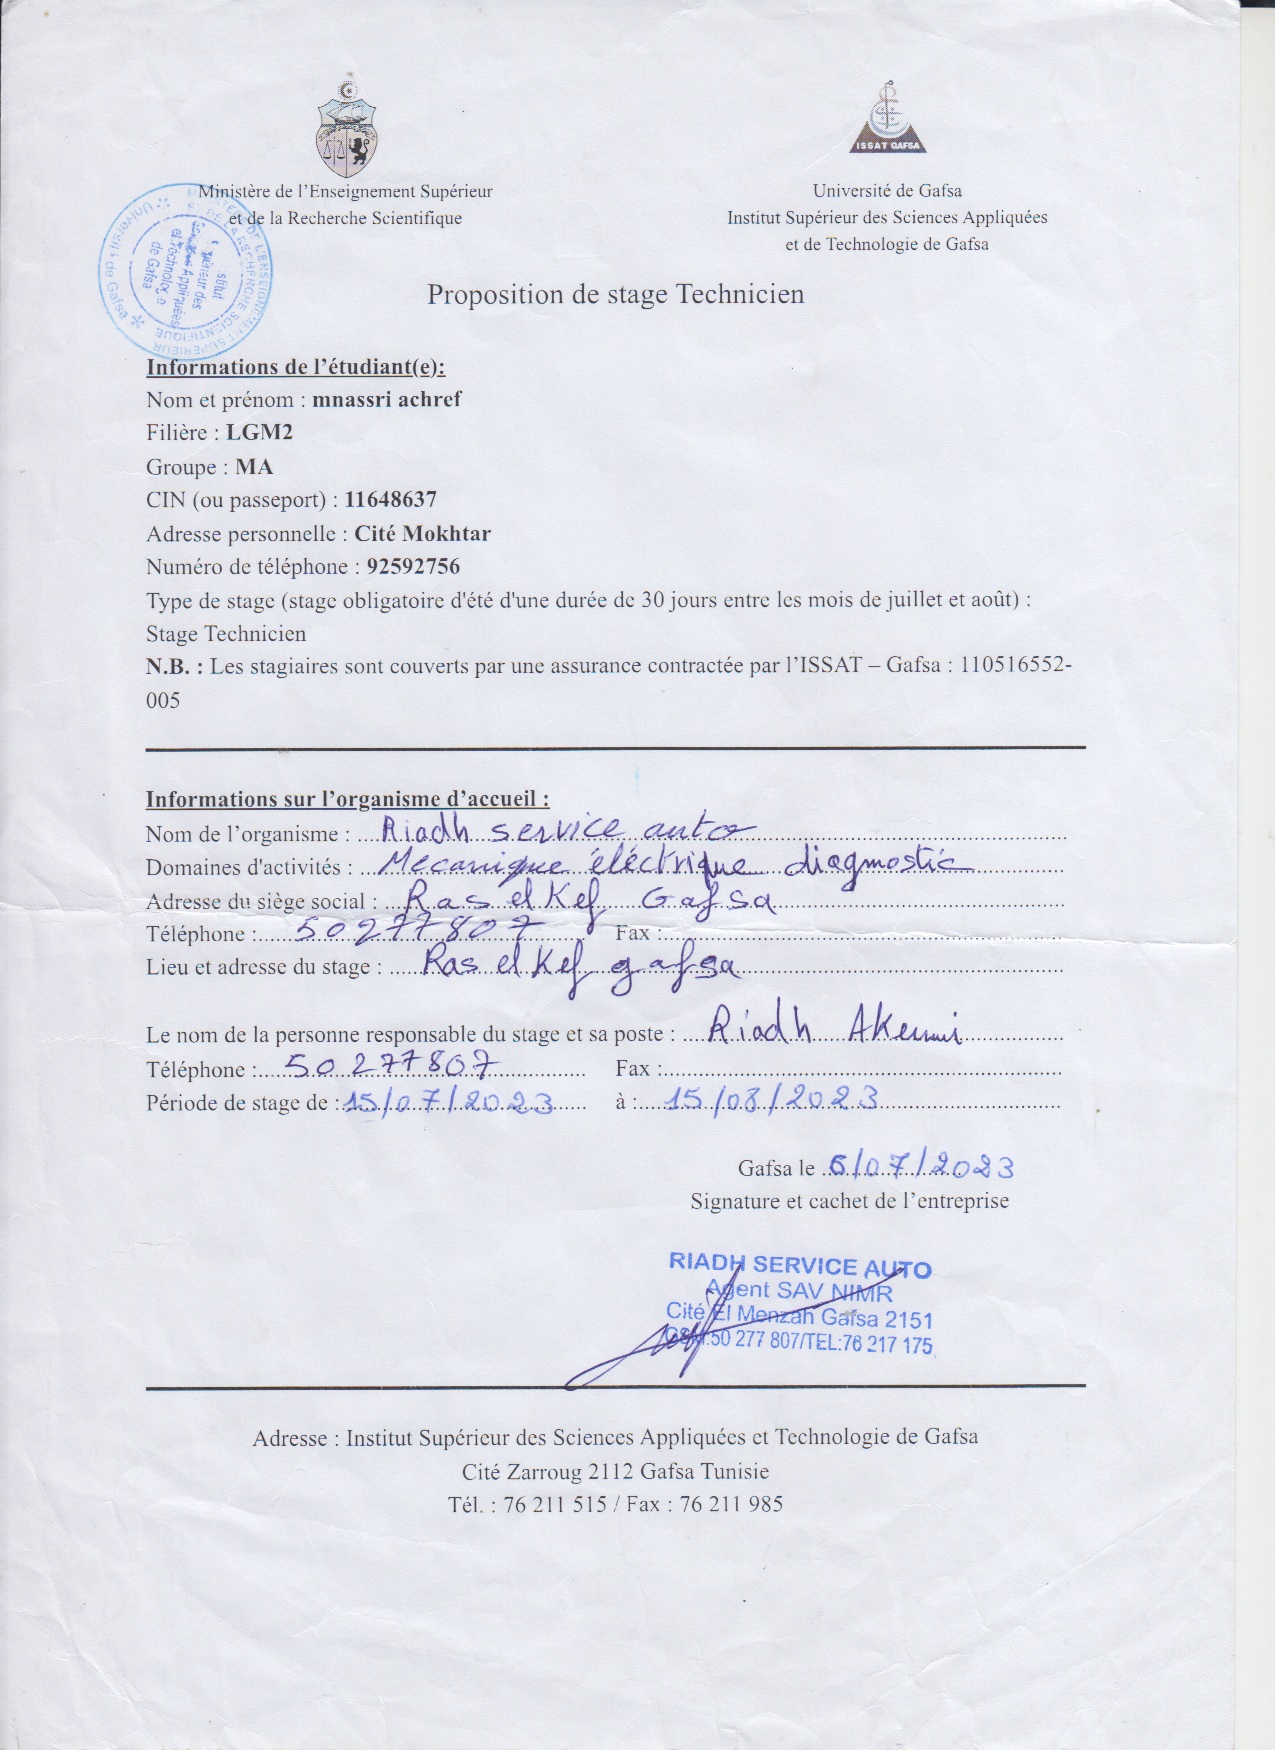 ISSAT GAFSA
Ministère de l'Enseignement Supérieur
et de la Recherche Scientifique
Université de Gafsa
Institut Supérieur des Sciences Appliquées
et de Technologie de Gafsa
Proposition de stage Technicien
Informations de l'étudiant(e):
Nom et prénom : mnassri achref
Filière : LGM2
Groupe : MA
CIN (ou passeport) : 11648637
Adresse personnelle : Cité Mokhtar
Numéro de téléphone : 92592756
Type de stage (stage obligatoire d'été d'une durée de 30 jours entre les mois de juillet et août) :
Stage Technicien
N.B. : Les stagiaires sont couverts par une assurance contractée par l'ISSAT – Gafsa : 110516552-
005
Informations sur l'organisme d'accueil :
Nom de l'organisme : Riadh service auto
Domaines d'activités : Mecanique éléctrique diagnostic
Adresse du siège social : Ras el Kef Gafsa
Téléphone : 50277807 Fax :
Lieu et adresse du stage : Ras el Kef gafsa
Le nom de la personne responsable du stage et sa poste : Riadh Akermi
Téléphone : 50277807 Fax :
Période de stage de : 15/07/2023 à : 15/08/2023
Gafsa le 6/07/2023
Signature et cachet de l'entreprise
RIADH SERVICE AUTO
Agent SAV NIMR
Cité El Menzah Gafsa 2151
50 277 807/TEL:76 217 175
Adresse : Institut Supérieur des Sciences Appliquées et Technologie de Gafsa
Cité Zarroug 2112 Gafsa Tunisie
Tél. : 76 211 515 / Fax : 76 211 985